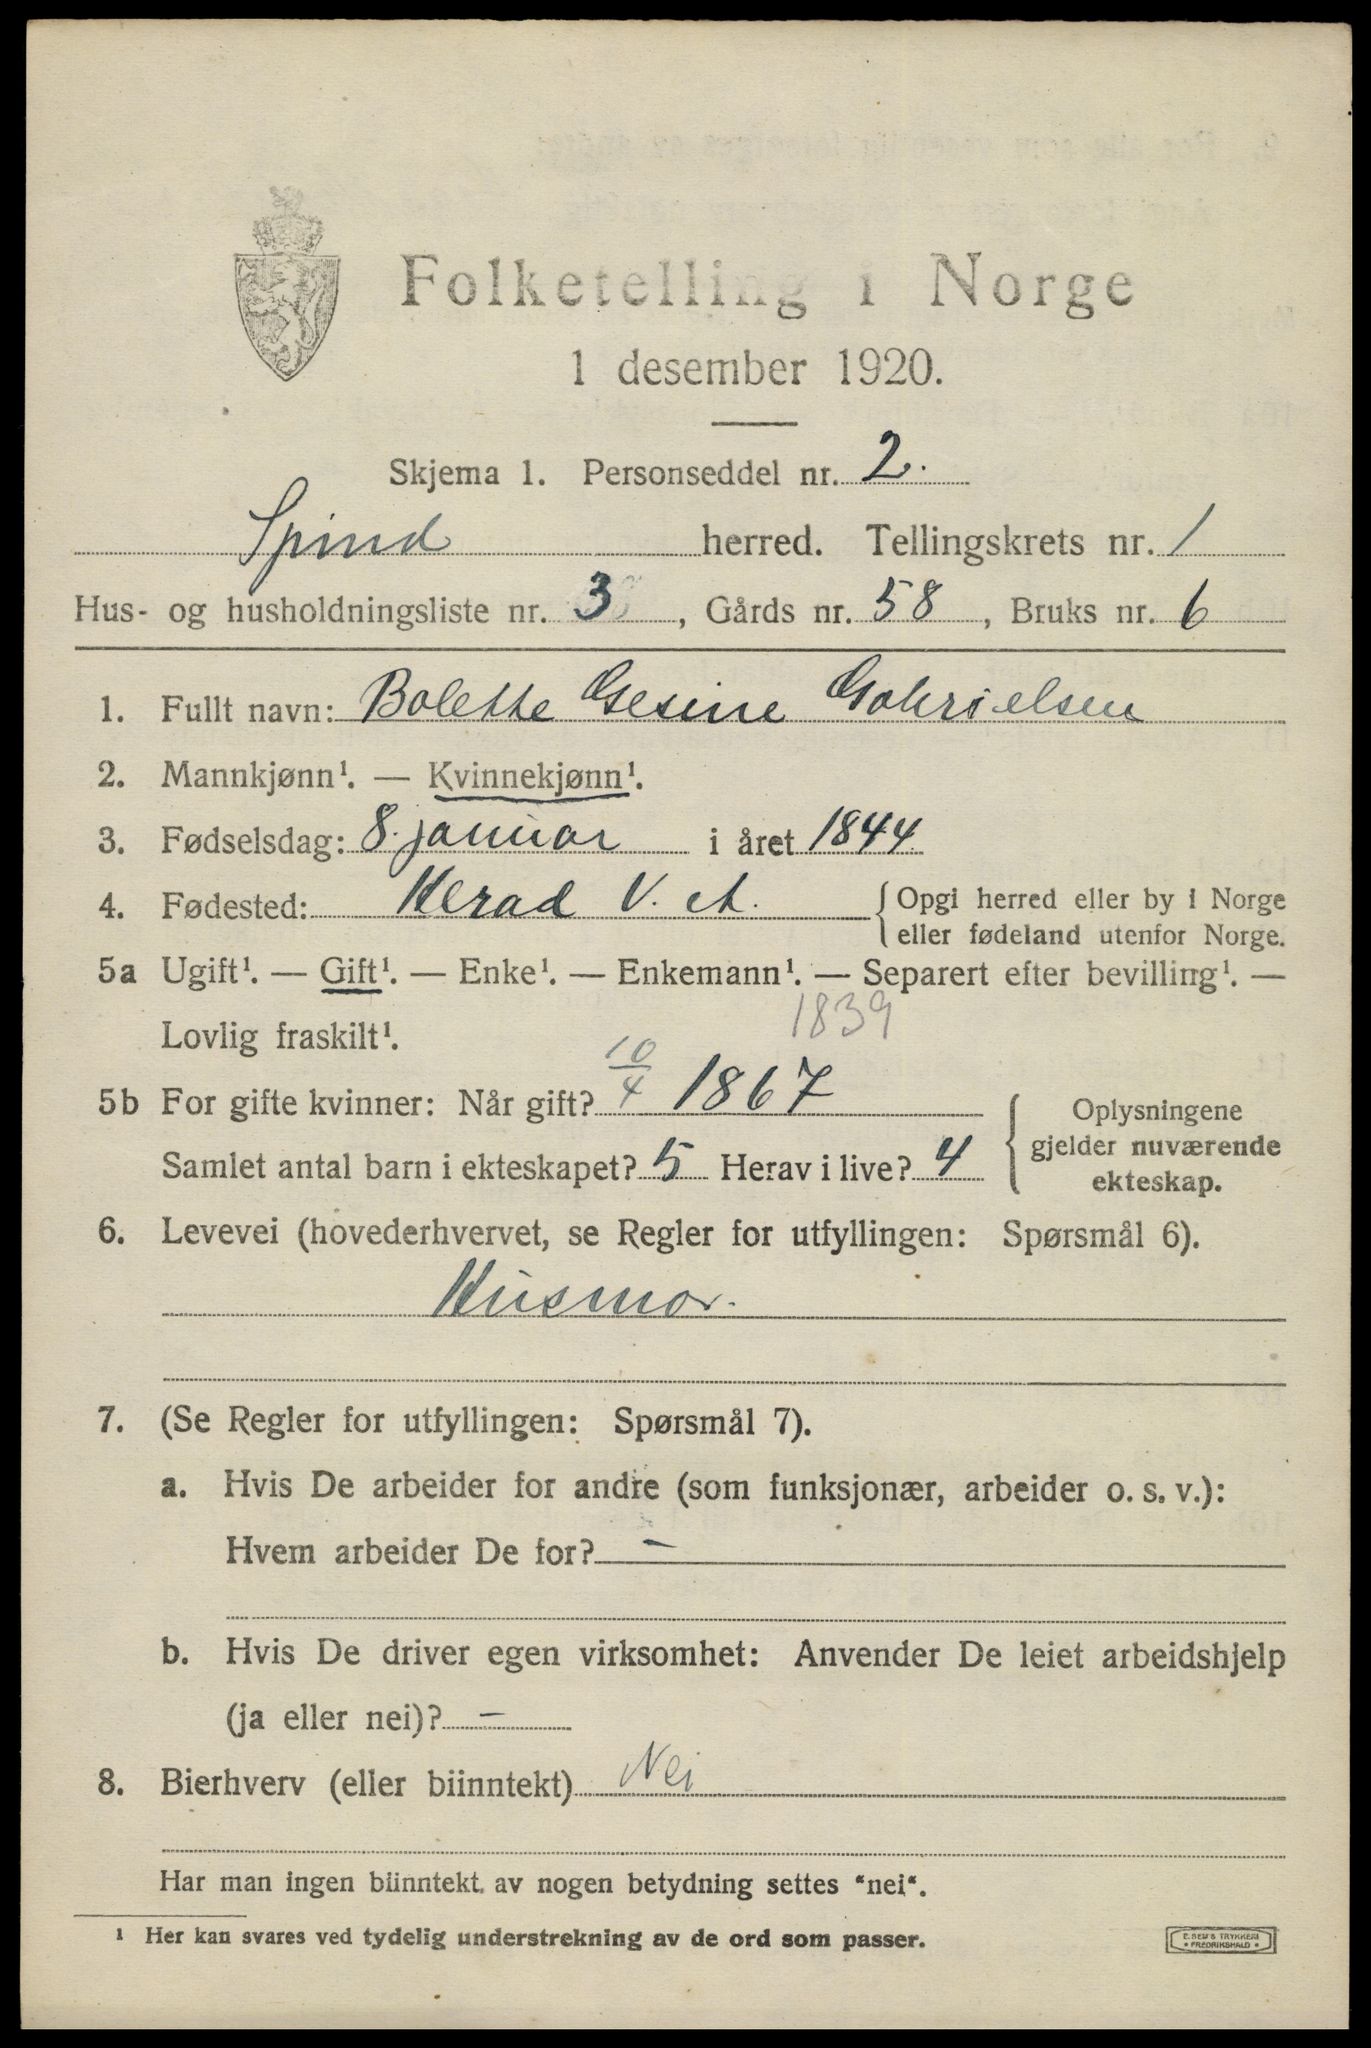 Folketelling i Norge
1 desember 1920.
Skjema 1. Personseddel nr. 2.
Spind herred. Tellingskrets nr. 1
Hus- og husholdningsliste nr. 3, Gårds nr. 58, Bruks nr. 6
1. Fullt navn: Bolette Gesine Gabrielsen
2. Mannkjønn¹. — Kvinnekjønn¹.
3. Fødselsdag: 8. januar i året 1844
4. Fødested: Herad V. A. { Opgi herred eller by i Norge
eller fødeland utenfor Norge.
5a Ugift¹. — Gift¹. — Enke¹. — Enkemann¹. — Separert efter bevilling¹. —
1839
Lovlig fraskilt¹.
5b For gifte kvinner: Når gift? 10/4 1867
Samlet antal barn i ekteskapet? 5 Herav i live? 4
Oplysningene
gjelder nuværende
ekteskap.
6. Levevei (hovederhvervet, se Regler for utfyllingen: Spørsmål 6).
Husmor.
7. (Se Regler for utfyllingen: Spørsmål 7).
a. Hvis De arbeider for andre (som funksjonær, arbeider o. s. v.):
Hvem arbeider De for? –
b. Hvis De driver egen virksomhet: Anvender De leiet arbeidshjelp
(ja eller nei)? –
8. Bierhverv (eller biinntekt) Nei
Har man ingen biinntekt av nogen betydning settes "nei".
¹ Her kan svares ved tydelig understrekning av de ord som passer.
E. SEM'S TRYKKERI
• FREDRIKSHALD •